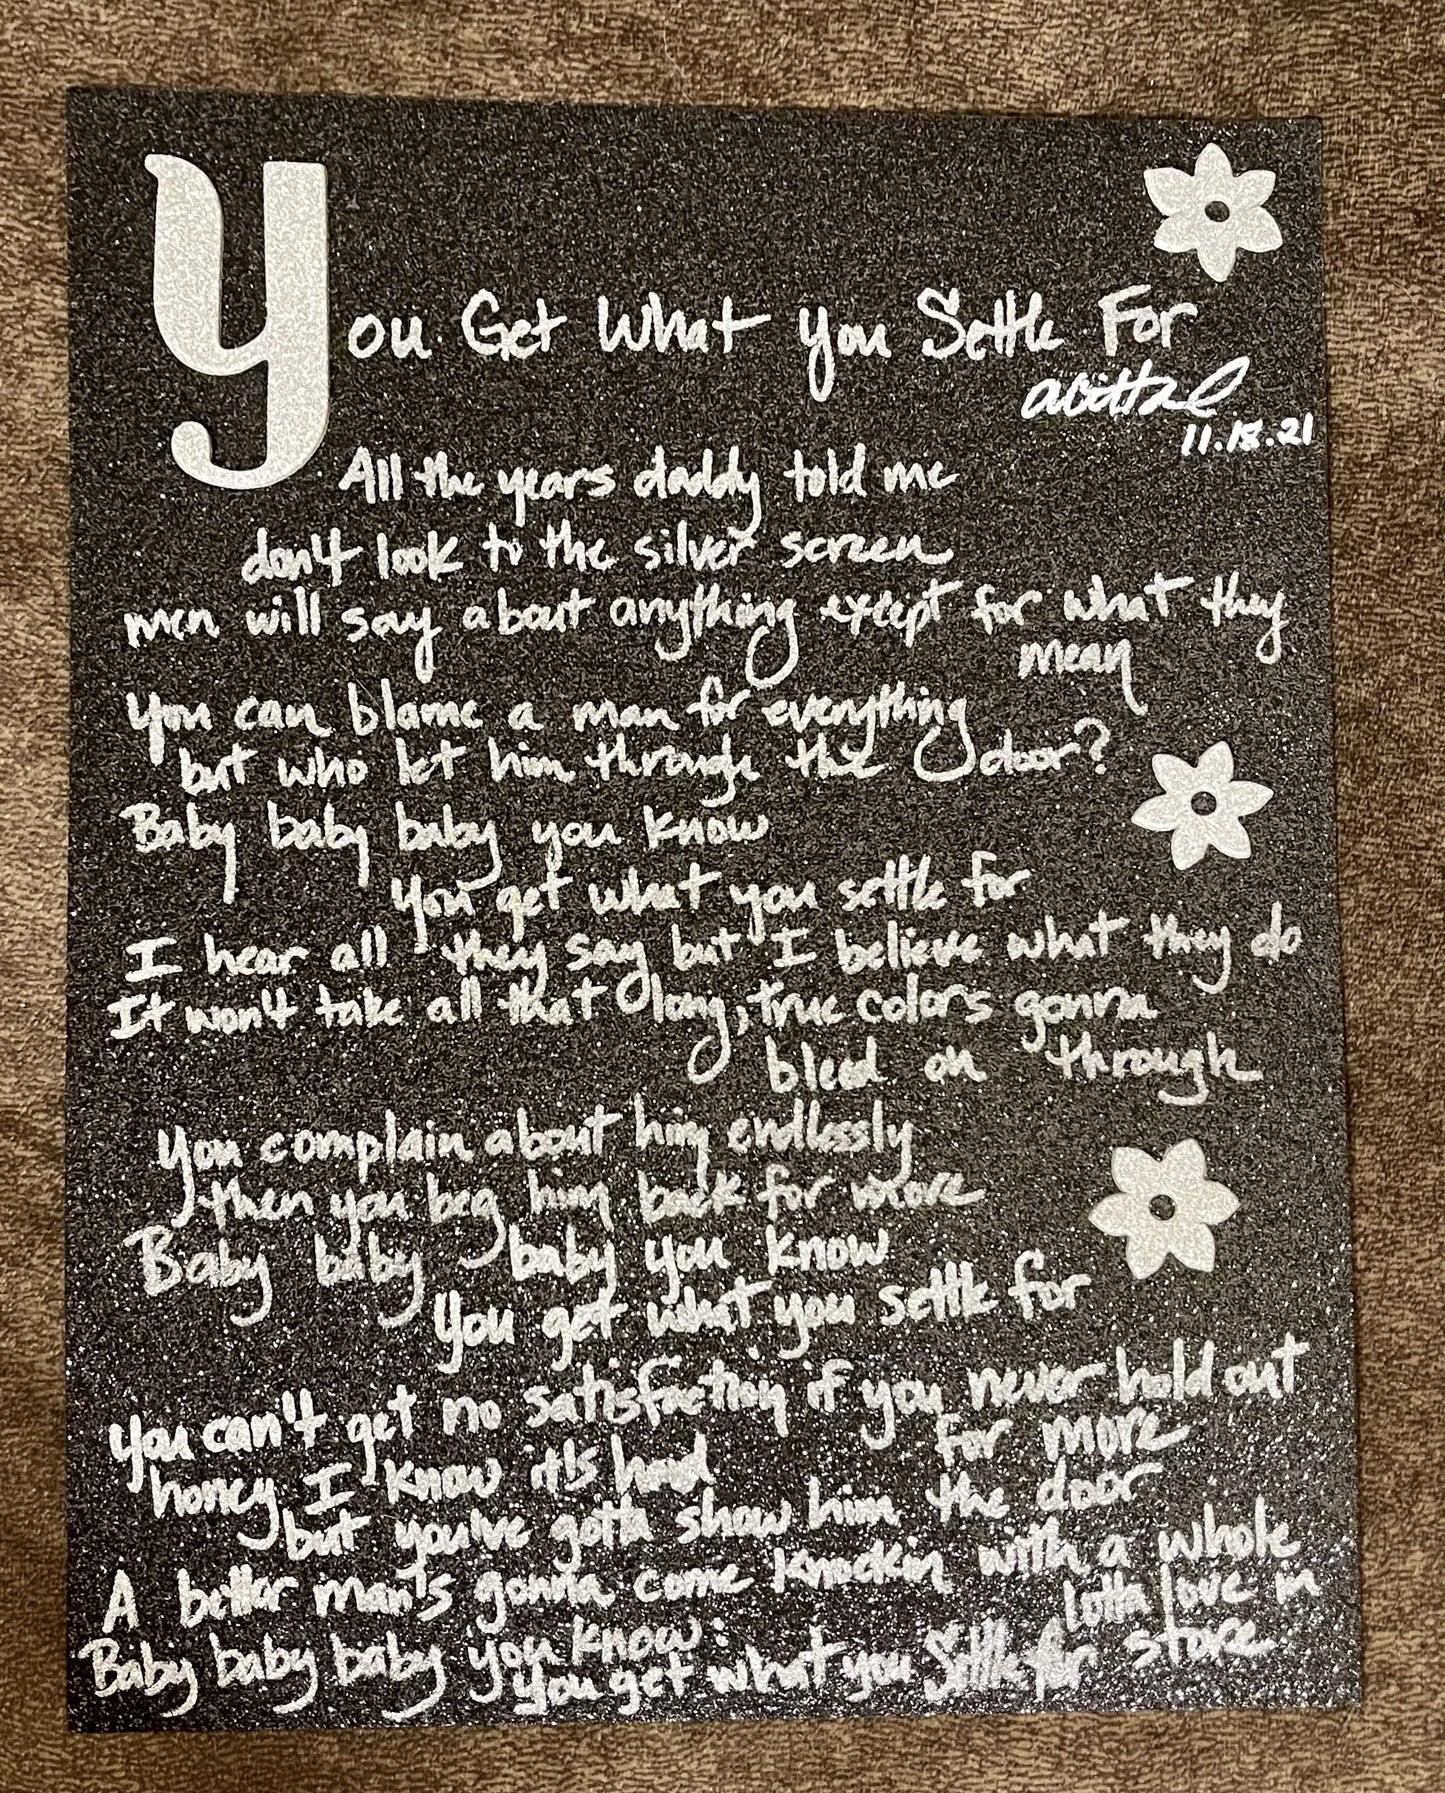 You Get What You Settle For
11.18.21
All the years daddy told me
don't look to the silver screen
men will say about anything except for what they
mean
You can blame a man for everything
but who let him through the door?
Baby baby baby you know
You get what you settle for
I hear all they say but I believe what they do
It won't take all that long, true colors gonna
bleed on through
You complain about him endlessly
then you beg him back for more
Baby baby baby you know
You get what you settle for
You can't get no satisfaction if you never hold out
for more
honey I know it's hard
but you've gotta show him the door
A better man's gonna come knockin with a whole
lotta love in
store
Baby baby baby you know:
You get what you Settle for